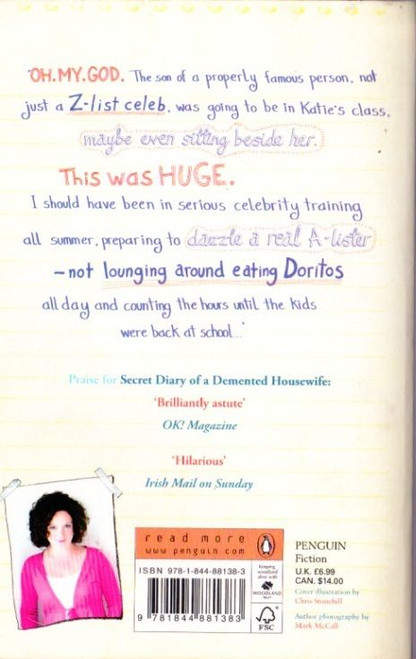 'OH.MY.GOD. The son of a properly famous person, not
just a Z-list celeb, was going to be in Katie's class,
maybe even sitting beside her.
This was HUGE.
I should have been in serious celebrity training
all summer, preparing to dazzle a real A-lister
– not lounging around eating Doritos
all day and counting the hours until the kids
were back at school...'
Praise for Secret Diary of a Demented Housewife:
'Brilliantly astute'
OK! Magazine
'Hilarious'
Irish Mail on Sunday
read more
www.penguin.com
ISBN 978-1-844-88138-3
9 781844 881383
FSC
PENGUIN
Fiction
U.K. £6.99
CAN. $14.00
Cover illustration by
Chris Stonehill
Author photography by
Mark McCall